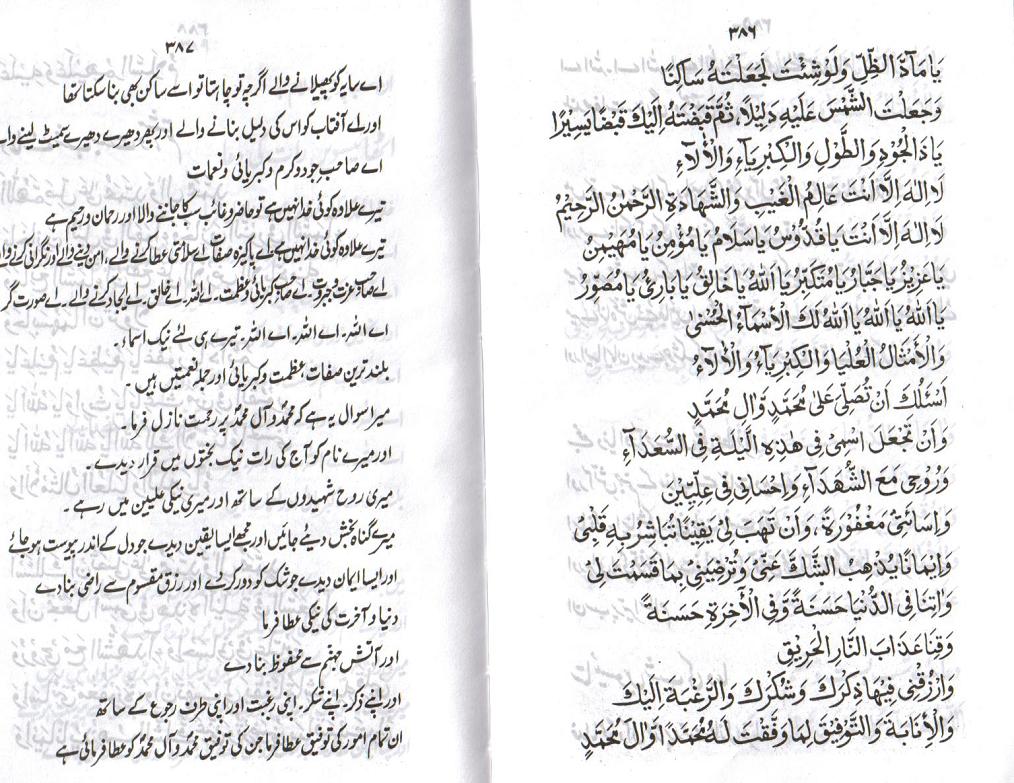 ۳۸۶
يَا مَآدَّ الظِّلِّ وَلَوْ شِئْتَ لَجَعَلْتَهُ سَاكِنًا
وَجَعَلْتَ الشَّمْسَ عَلَيْهِ دَلِيْلًا، ثُمَّ قَبَضْتَهُ اِلَيْكَ قَبْضًا يَسِيْرًا
يَا ذَا الْجُوْدِ وَالطَّوْلِ وَالْكِبْرِيَآءِ وَالْاٰلَآءِ
لَا اِلٰهَ اِلَّا اَنْتَ عَالِمُ الْغَيْبِ وَالشَّهَادَةِ الرَّحْمٰنُ الرَّحِيْمُ
لَا اِلٰهَ اِلَّا اَنْتَ يَا قُدُّوْسُ يَا سَلَامُ يَا مُؤْمِنُ يَا مُهَيْمِنُ
يَا عَزِيْزُ يَا جَبَّارُ يَا مُتَكَبِّرُ يَا اَللهُ يَا خَالِقُ يَا بَارِئُ يَا مُصَوِّرُ
يَا اَللهُ يَا اَللهُ يَا اَللهُ لَكَ الْاَسْمَآءُ الْحُسْنٰى
وَالْاَمْثَالُ الْعُلْيَا وَالْكِبْرِيَآءُ وَالْاٰلَآءُ
اَسْئَلُكَ اَنْ تُصَلِّىَ عَلٰى مُحَمَّدٍ وَّاٰلِ مُحَمَّدٍ
وَاَنْ تَجْعَلَ اسْمِىْ فِىْ هٰذِهِ الَّيْلَةِ فِى السُّعَدَآءِ
وَرُوْحِىْ مَعَ الشُّهَدَآءِ وَاِحْسَانِىْ فِىْ عِلِّيِّيْنَ
وَاِسَائَتِىْ مَغْفُوْرَةً، وَاَنْ تَهَبَ لِىْ يَقِيْنًا تُبَاشِرُ بِهِ قَلْبِىْ
وَاِيْمَانًا يُذْهِبُ الشَّكَّ عَنِّىْ وَتُرْضِيَنِىْ بِمَا قَسَمْتَ لِىْ
وَاٰتِنَا فِى الدُّنْيَا حَسَنَةً وَّفِى الْاٰخِرَةِ حَسَنَةً
وَقِنَا عَذَابَ النَّارِ الْحَرِيْقِ
وَارْزُقْنِىْ فِيْهَا ذِكْرَكَ وَشُكْرَكَ وَالرَّغْبَةَ اِلَيْكَ
وَالْاِنَابَةَ وَالتَّوْفِيْقَ لِمَا وَفَّقْتَ لَهُ مُحَمَّدًا وَّاٰلَ مُحَمَّدٍ
۳۸۷
اے سایہ کو پھیلانے والے اگرچہ تو چاہتا تو اسے ساکن بھی بنا سکتا تھا
اور اے آفتاب کو اس کی دلیل بنانے والے اور پھر دھیرے دھیرے سمیٹ لینے والے
اے صاحبِ جود و کرم و کبریائی و نعمات
تیرے علاوہ کوئی خدا نہیں ہے تو حاضر و غائب سب کا جاننے والا اور رحمان و رحیم ہے
تیرے علاوہ کوئی خدا نہیں ہے اے پاکیزہ صفات اے سلامتی عطا کرنے والے، امن دینے والے اور نگرانی کرنے
اے صاحبِ عزت و جبروت۔ اے صاحب کبریائی و عظمت۔ اے اللہ۔ اے خالق۔ اے ایجاد کرنے والے۔ اے صورت گر
اے اللہ۔ اے اللہ۔ اے اللہ۔ تیرے ہی لئے نیک اسماء۔
بلند ترین صفات، عظمت و کبریائی اور جملہ نعمتیں ہیں۔
میرا سوال یہ ہے کہ محمدؐ و آل محمدؐ پر رحمت نازل فرما۔
اور میرے نام کو آج کی رات نیک بختوں میں قرار دیدے۔
میری روح شہیدوں کے ساتھ اور میری نیکی علیین میں رہے۔
میرے گناہ بخش دیئے جائیں اور مجھے ایسا یقین دیدے جو دل کے اندر پیوست ہو جائے
اور ایسا ایمان دیدے جو شک کو دور کر دے اور رزق مقسوم سے راضی بنا دے
دنیا و آخرت کی نیکی عطا فرما
اور آتش جہنم سے محفوظ بنا دے
اور اپنے ذکر۔ اپنے شکر۔ اپنی رغبت اور اپنی طرف رجوع کے ساتھ
ان تمام امور کی توفیق عطا فرما جن کی توفیق محمدؐ و آل محمدؐ کو عطا فرمائی ہے